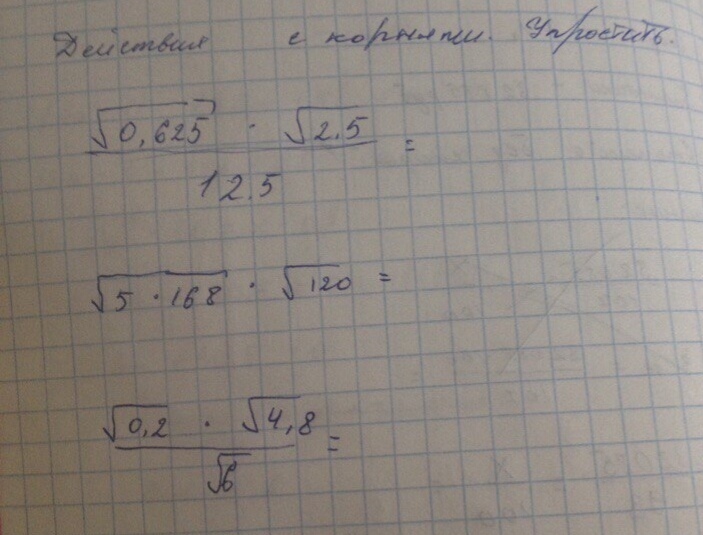 Действия с корнями. Упростить.
√0,625 · √2.5
12.5 =
√5 · 168 · √120 =
√0,2 · √4,8
√6 =